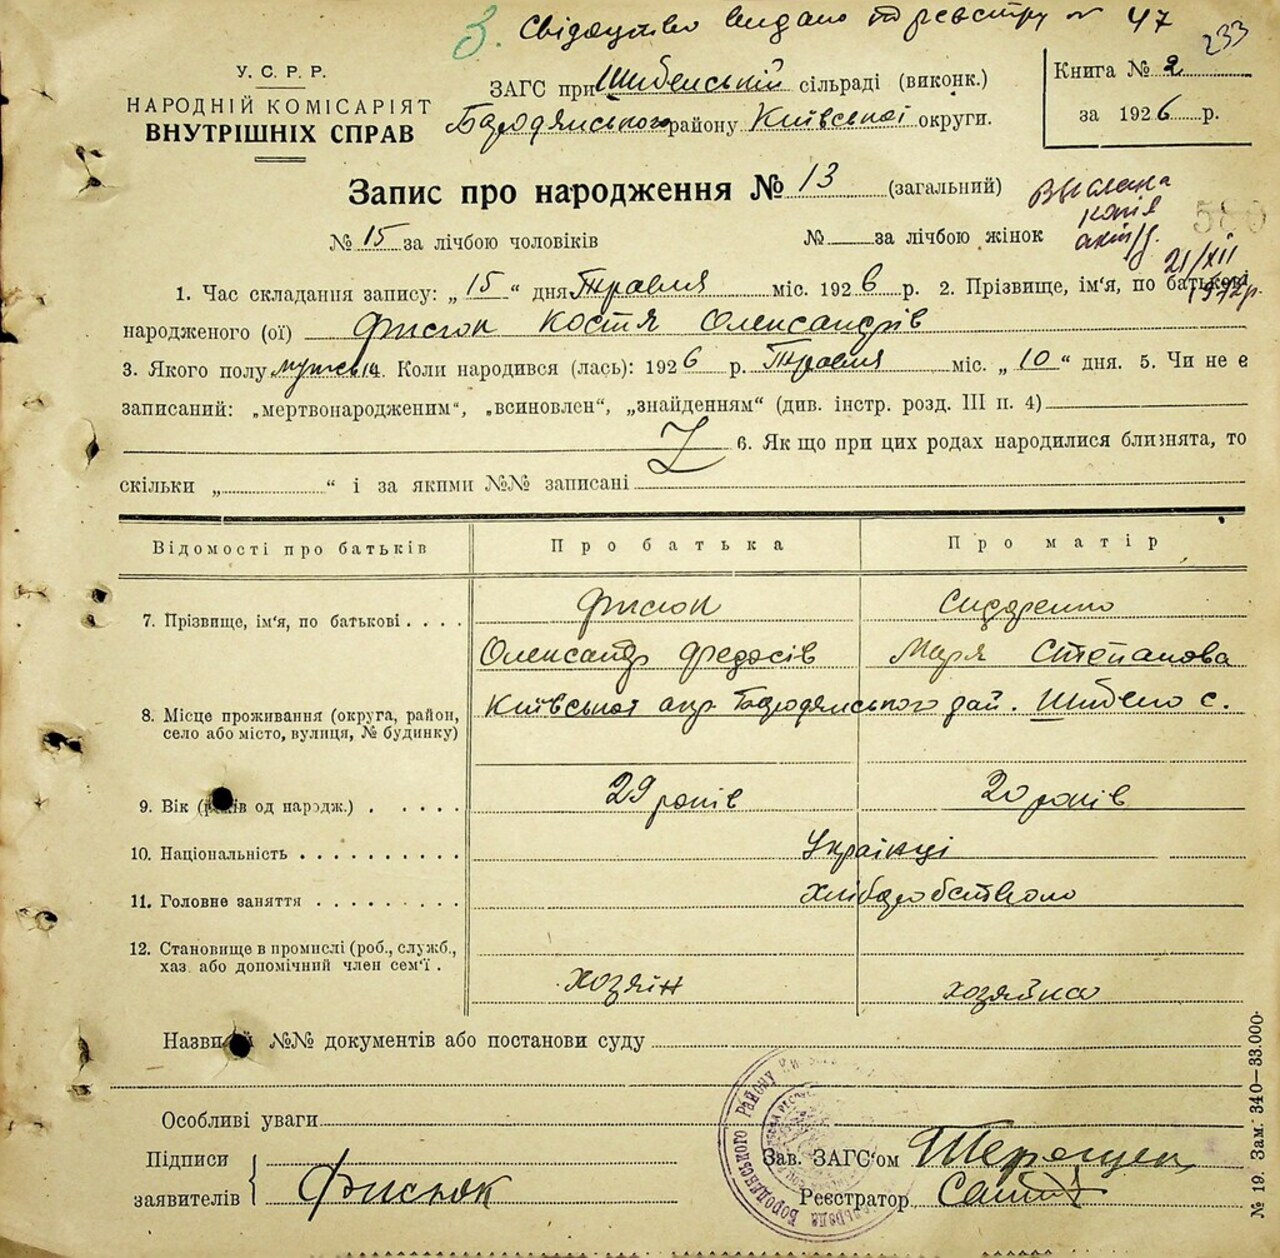 З. Свідоцтво видано по реєстру № 47
233
У. С. Р. Р.
НАРОДНІЙ КОМІСАРІЯТ
ВНУТРІШНІХ СПРАВ
ЗАГС при Шибенській сільраді (виконк.)
Бородянського району Київської округи.
Книга № 2
за 1926 р.
Запис про народження № 13 (загальний)
Выслана
копія
акт/
21/XII
1972р.
№ 15 за лічбою чоловіків № за лічбою жінок
1. Час складання запису: „15“ дня Травля міс. 1926 р. 2. Прізвище, ім'я, по батькові
народженого (ої) Фисюк Костя Олександрів
3. Якого полу мужськ. Коли народився (лась): 1926 р. Травля міс. „10“ дня. 5. Чи не є
записаний: „мертвонародженим“, „всиновлен“, „знайденням“ (див. інстр. розд. III п. 4)
Z 6. Як що при цих родах народилися близнята, то
скільки „ “ і за якими №№ записані
Відомості про батьків Про батька Про матір
7. Прізвище, ім'я, по батькові . . . . Фисюк Сидоренко
Олександр Федосів Маря Степанова
8. Місце проживання (округа, район, Київської окр. Бородянського рай. Шибено с.
село або місто, вулиця, № будинку)
9. Вік (років од народж.) . . . . . 29 років 20 років
10. Національність . . . . . . . . . . Українці
11. Головне заняття . . . . . . . . . Хліборобством
12. Становище в промислі (роб., служб.,
хаз. або допомічний член сем'ї . хозяїн хозяйка
Назви й №№ документів або постанови суду
Особливі уваги
Підписи
заявителів Фисюк
Зав. ЗАГС'ом
Реєстратор
Бородянського Району
№ 19. Зам. 340—33.000